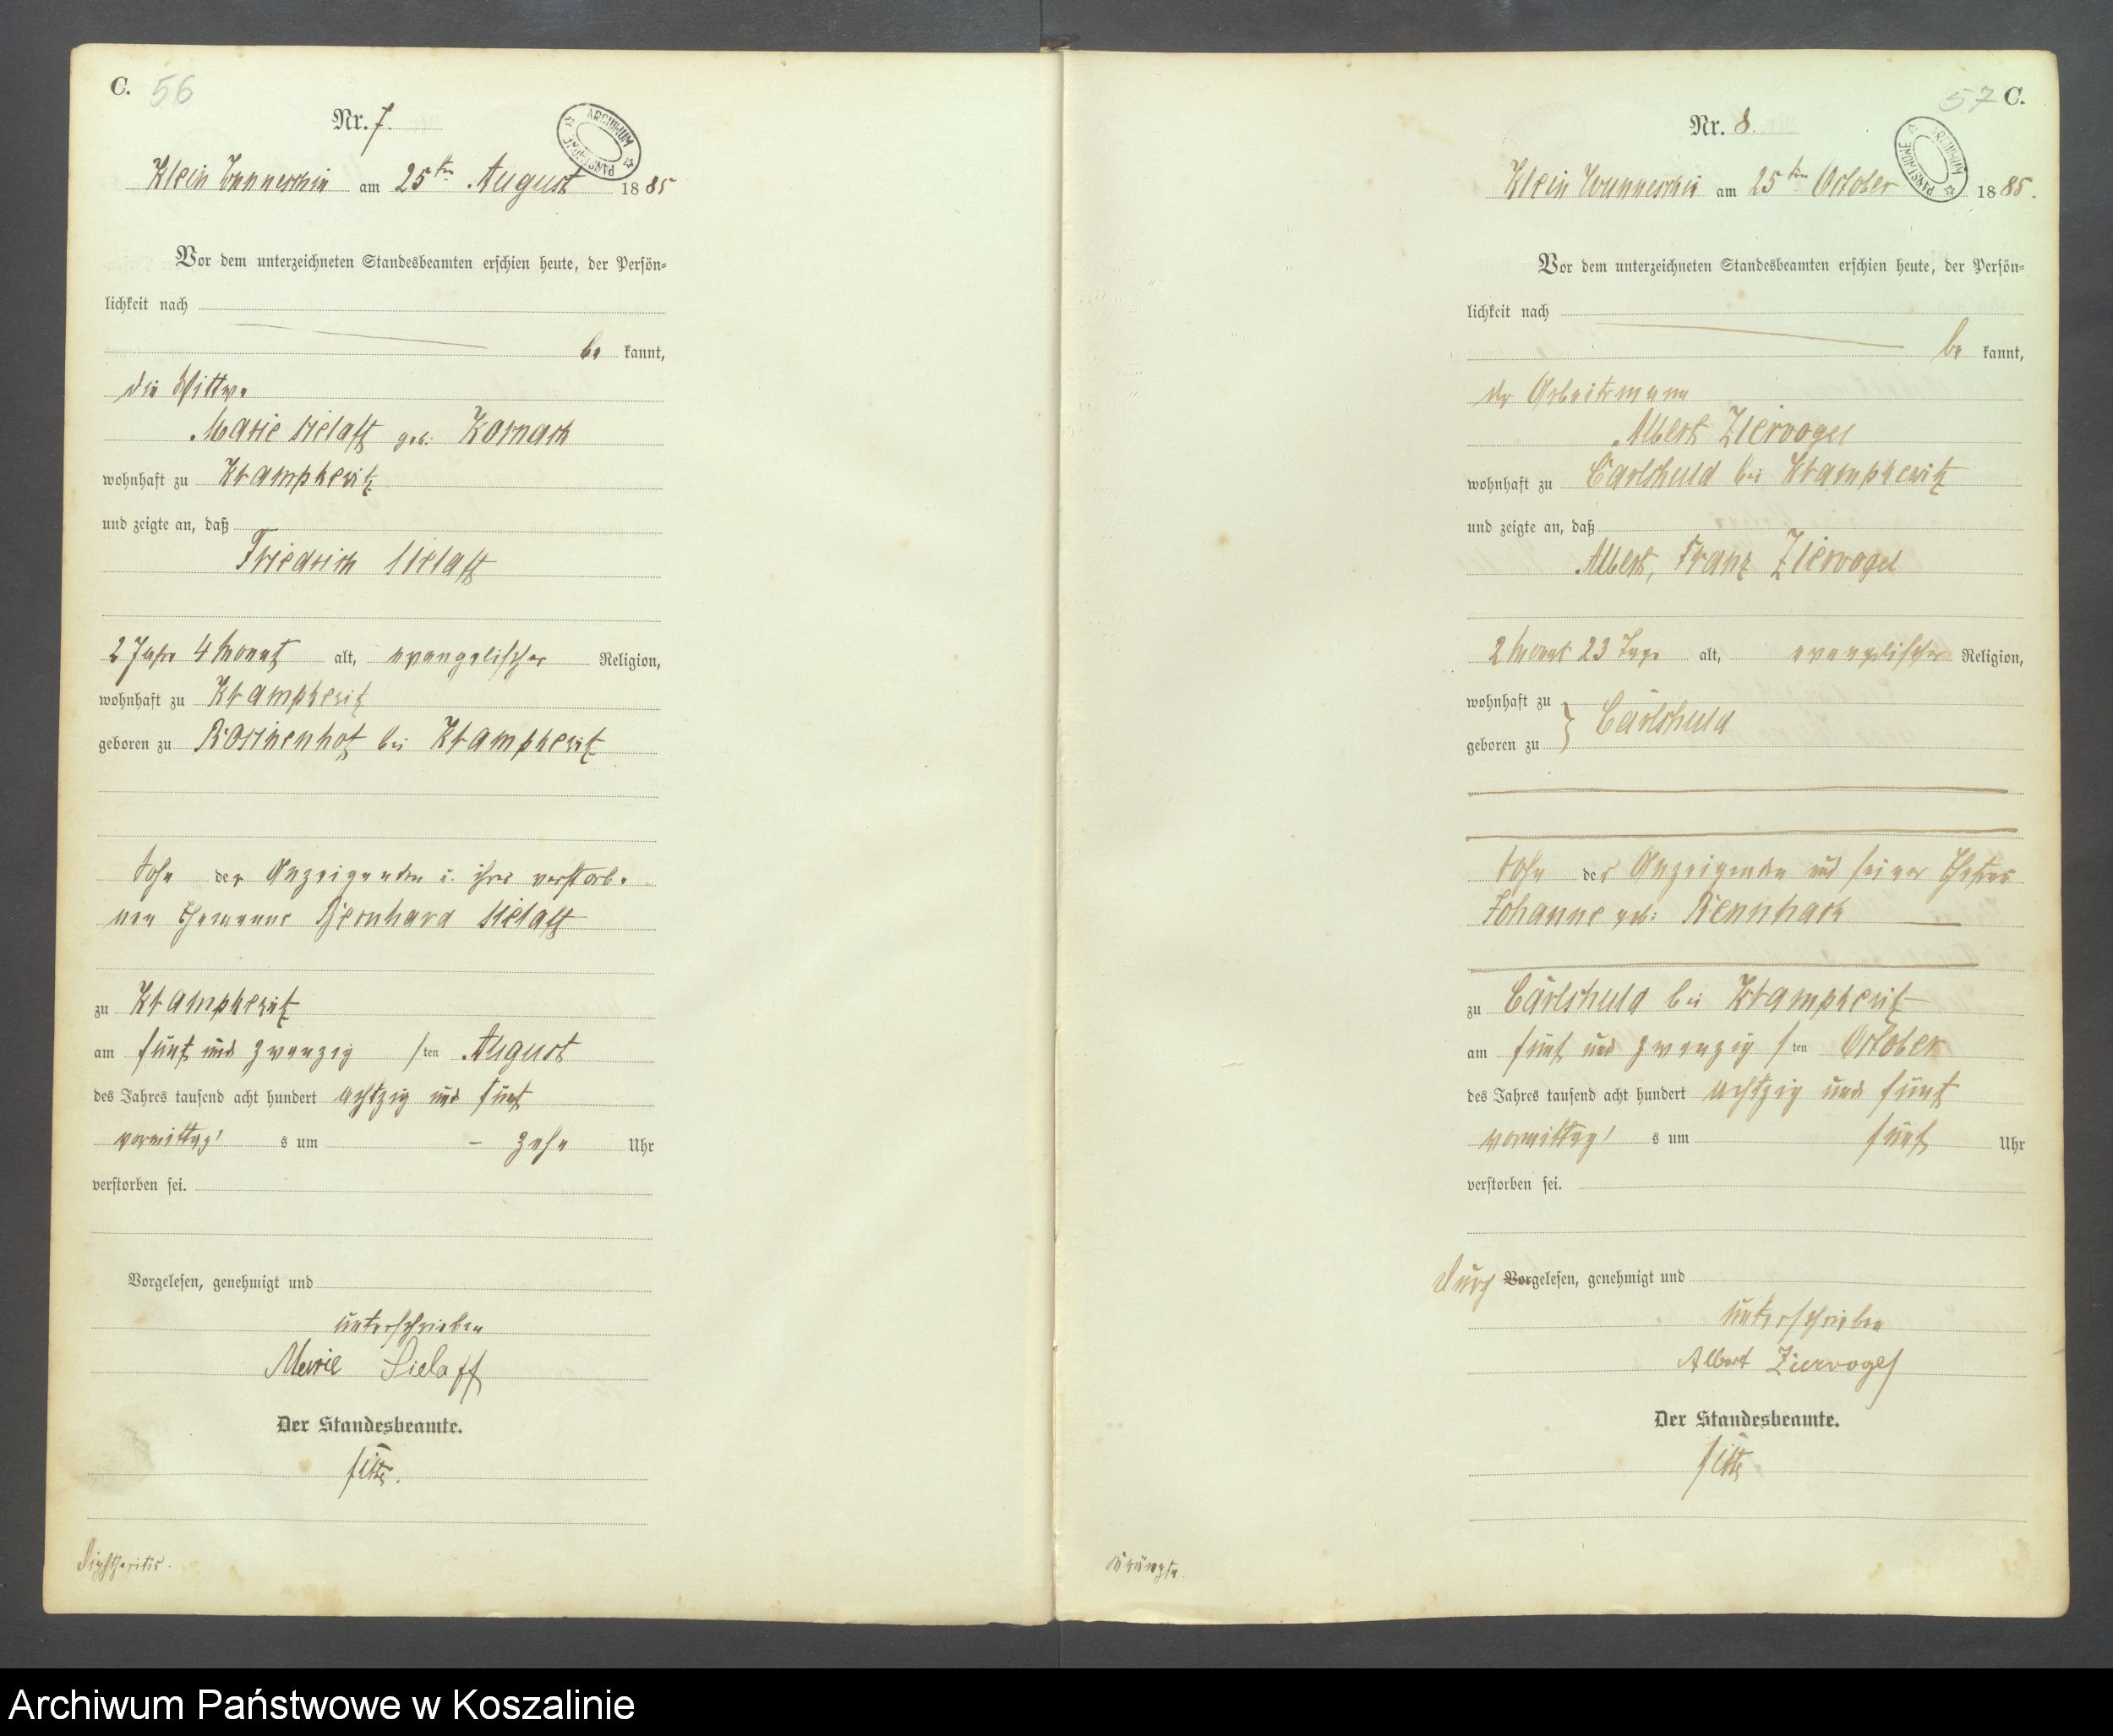 C. 56
Nr. 7.
ARCHIWUM PAŃSTWOWE
Klein Wunneschin am 25ten August 1885
Vor dem unterzeichneten Standesbeamten erschien heute, der Persön-
lichkeit nach
be kannt,
die Wittwe
Marie Sielaff geb. Kornack
wohnhaft zu Krampkewitz
und zeigte an, daß
Friedrich Sielaff
2 Jahr 4 Monat alt, evangelischer Religion,
wohnhaft zu Krampkewitz
geboren zu Rosinenhof bei Krampkewitz
Sohn der Anzeigenden u. ihres verstorbe-
nen Ehemanns Bernhard Sielaff
zu Krampkewitz
am fünf und zwanzig sten August
des Jahres tausend acht hundert achtzig und fünf
vormittag s um – zehn Uhr
verstorben sei.
Vorgelesen, genehmigt und
unterschrieben
Marie Sielaff
Der Standesbeamte.
Diphtheritis.
57 C.
Nr. 8.
ARCHIWUM PAŃSTWOWE
Klein Wunneschin am 25ten October 1885.
Vor dem unterzeichneten Standesbeamten erschien heute, der Persön-
lichkeit nach
be kannt,
der Arbeitsmann
Albert Ziervogel
wohnhaft zu Carlshuld bei Krampkewitz
und zeigte an, daß
Albert, Franz Ziervogel
2 Monat 23 Tage alt, evangelischer Religion,
wohnhaft zu
geboren zu } Carlshuld
Sohn des Anzeigenden und seiner Ehefrau
Johanne geb: Rennhack
zu Carlshuld bei Krampkewitz
am fünf und zwanzig sten October
des Jahres tausend acht hundert achtzig und fünf
vormittag s um fünf Uhr
verstorben sei.
Durch Vorgelesen, genehmigt und
unterschrieben
Albert Ziervogel
Der Standesbeamte.
Krämpfe.
Archiwum Państwowe w Koszalinie